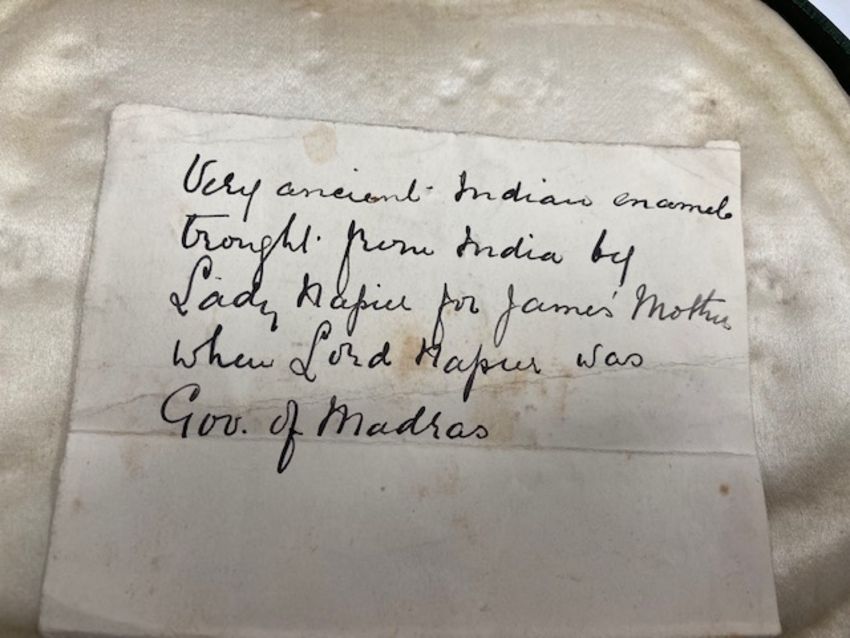 Very ancient Indian enamels
brought from India by
Lady Napier for James' Mother
when Lord Napier was
Gov. of Madras